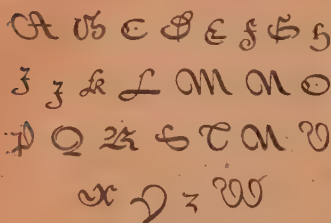 A B C D E F G H
I J K L M N O
P Q R S T U V
X Y Z W